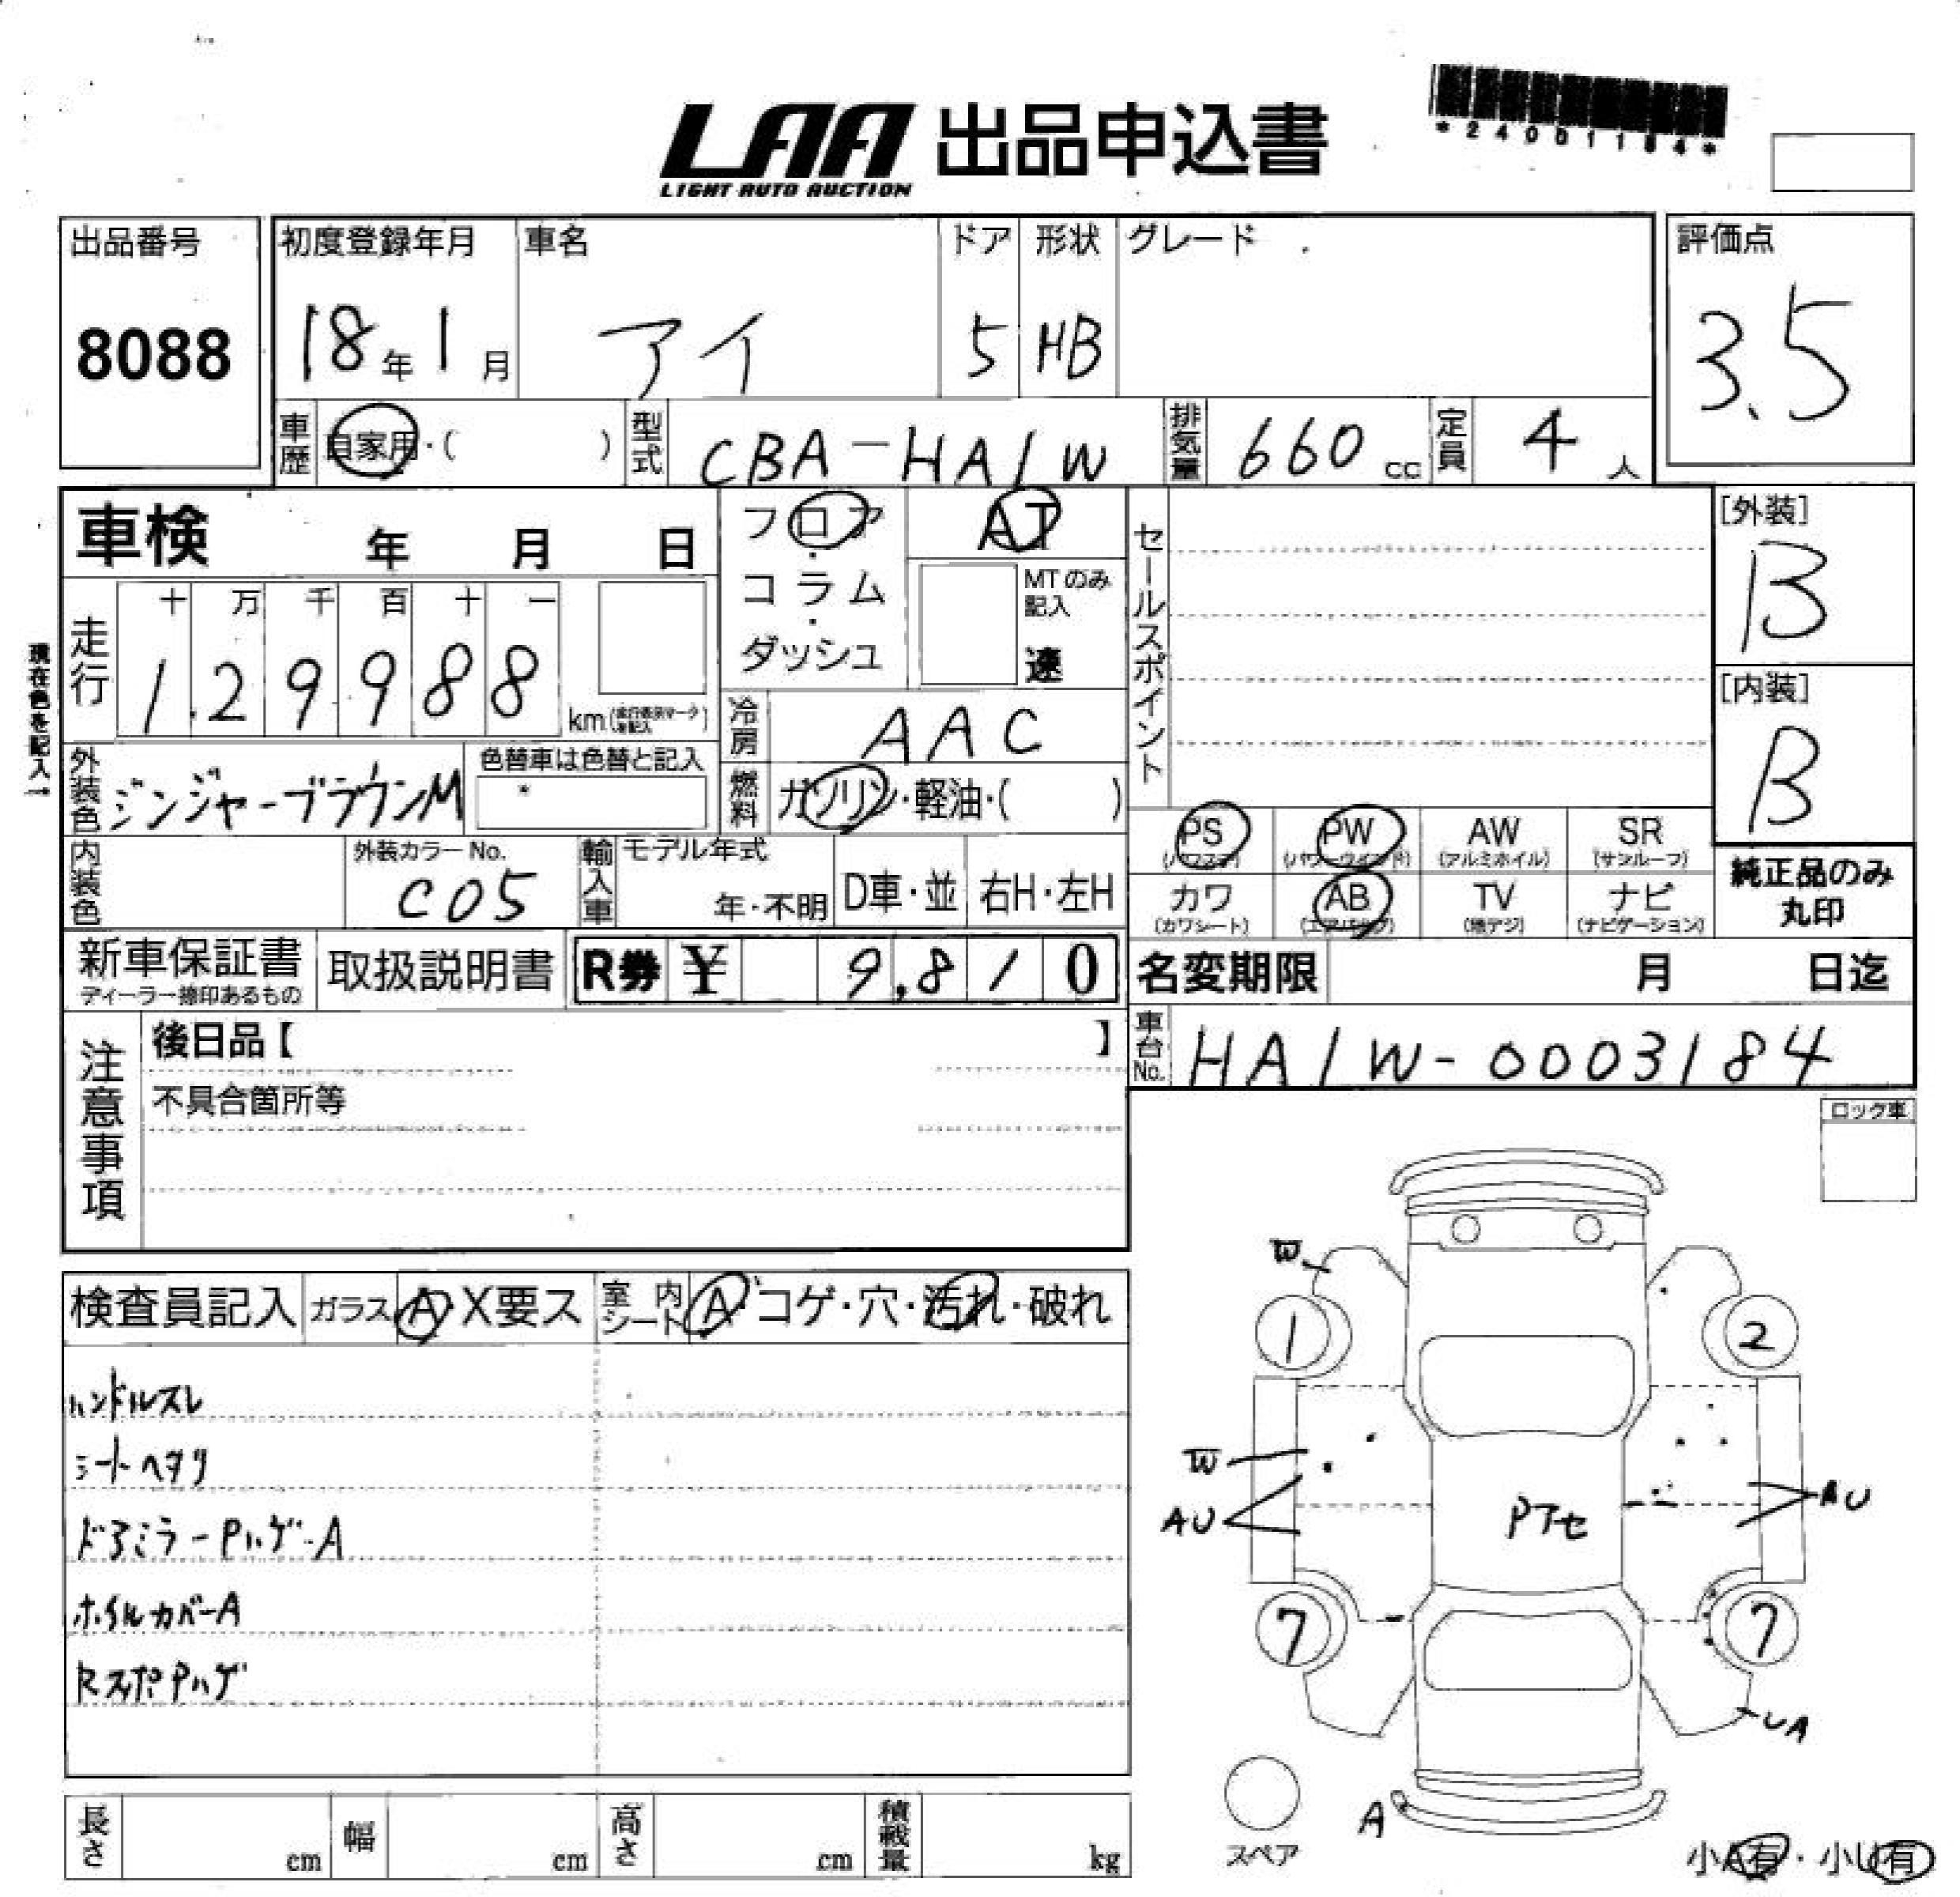 LAA 出品申込書
LIGHT AUTO AUCTION
*24001184*
出品番号
8088
初度登録年月 車名 ドア 形状 グレード
18年1月 アイ 5 HB
評価点
3.5
車歴 自家用・( ) 型式 CBA-HA1W 排気量 660cc 定員 4人
車検 年 月 日
フロア・コラム・ダッシュ
AT
MTのみ記入
速
セールスポイント
[外装]
B
[内装]
B
現在色を記入→
走行 十 万 千 百 十 一
1.29988 km
冷房 AAC
外装色 ジンジャーブラウンM
色替車は色替と記入
燃料 ガソリン・軽油・( )
PS (パワステ) PW (パワーウインドウ) AW (アルミホイル) SR (サンルーフ)
カワ (カワシート) AB (エアバッグ) TV (地デジ) ナビ (ナビゲーション)
純正品のみ
丸印
内装色 外装カラーNo.
C05
輸入車 モデル年式
年・不明 D車・並 右H・左H
新車保証書 取扱説明書 R券 ¥ 9,810
ディーラー捺印あるもの
名変期限 月 日迄
車台No. HA1W-0003184
注意事項
後日品【 】
不具合箇所等
ロック車
検査員記入 ガラス A・X要ス 室内シート A・コゲ・穴・汚れ・破れ
ハンドルスレ
シートヘタリ
ドアミラーPハゲ-A
ホイルカバーA
RスポPハゲ
W
1 2
W
AU
Pアセ
AU
7 7
UA
A
スペア
小A有・小U有
長さ cm 幅 cm 高さ cm 積載量 kg